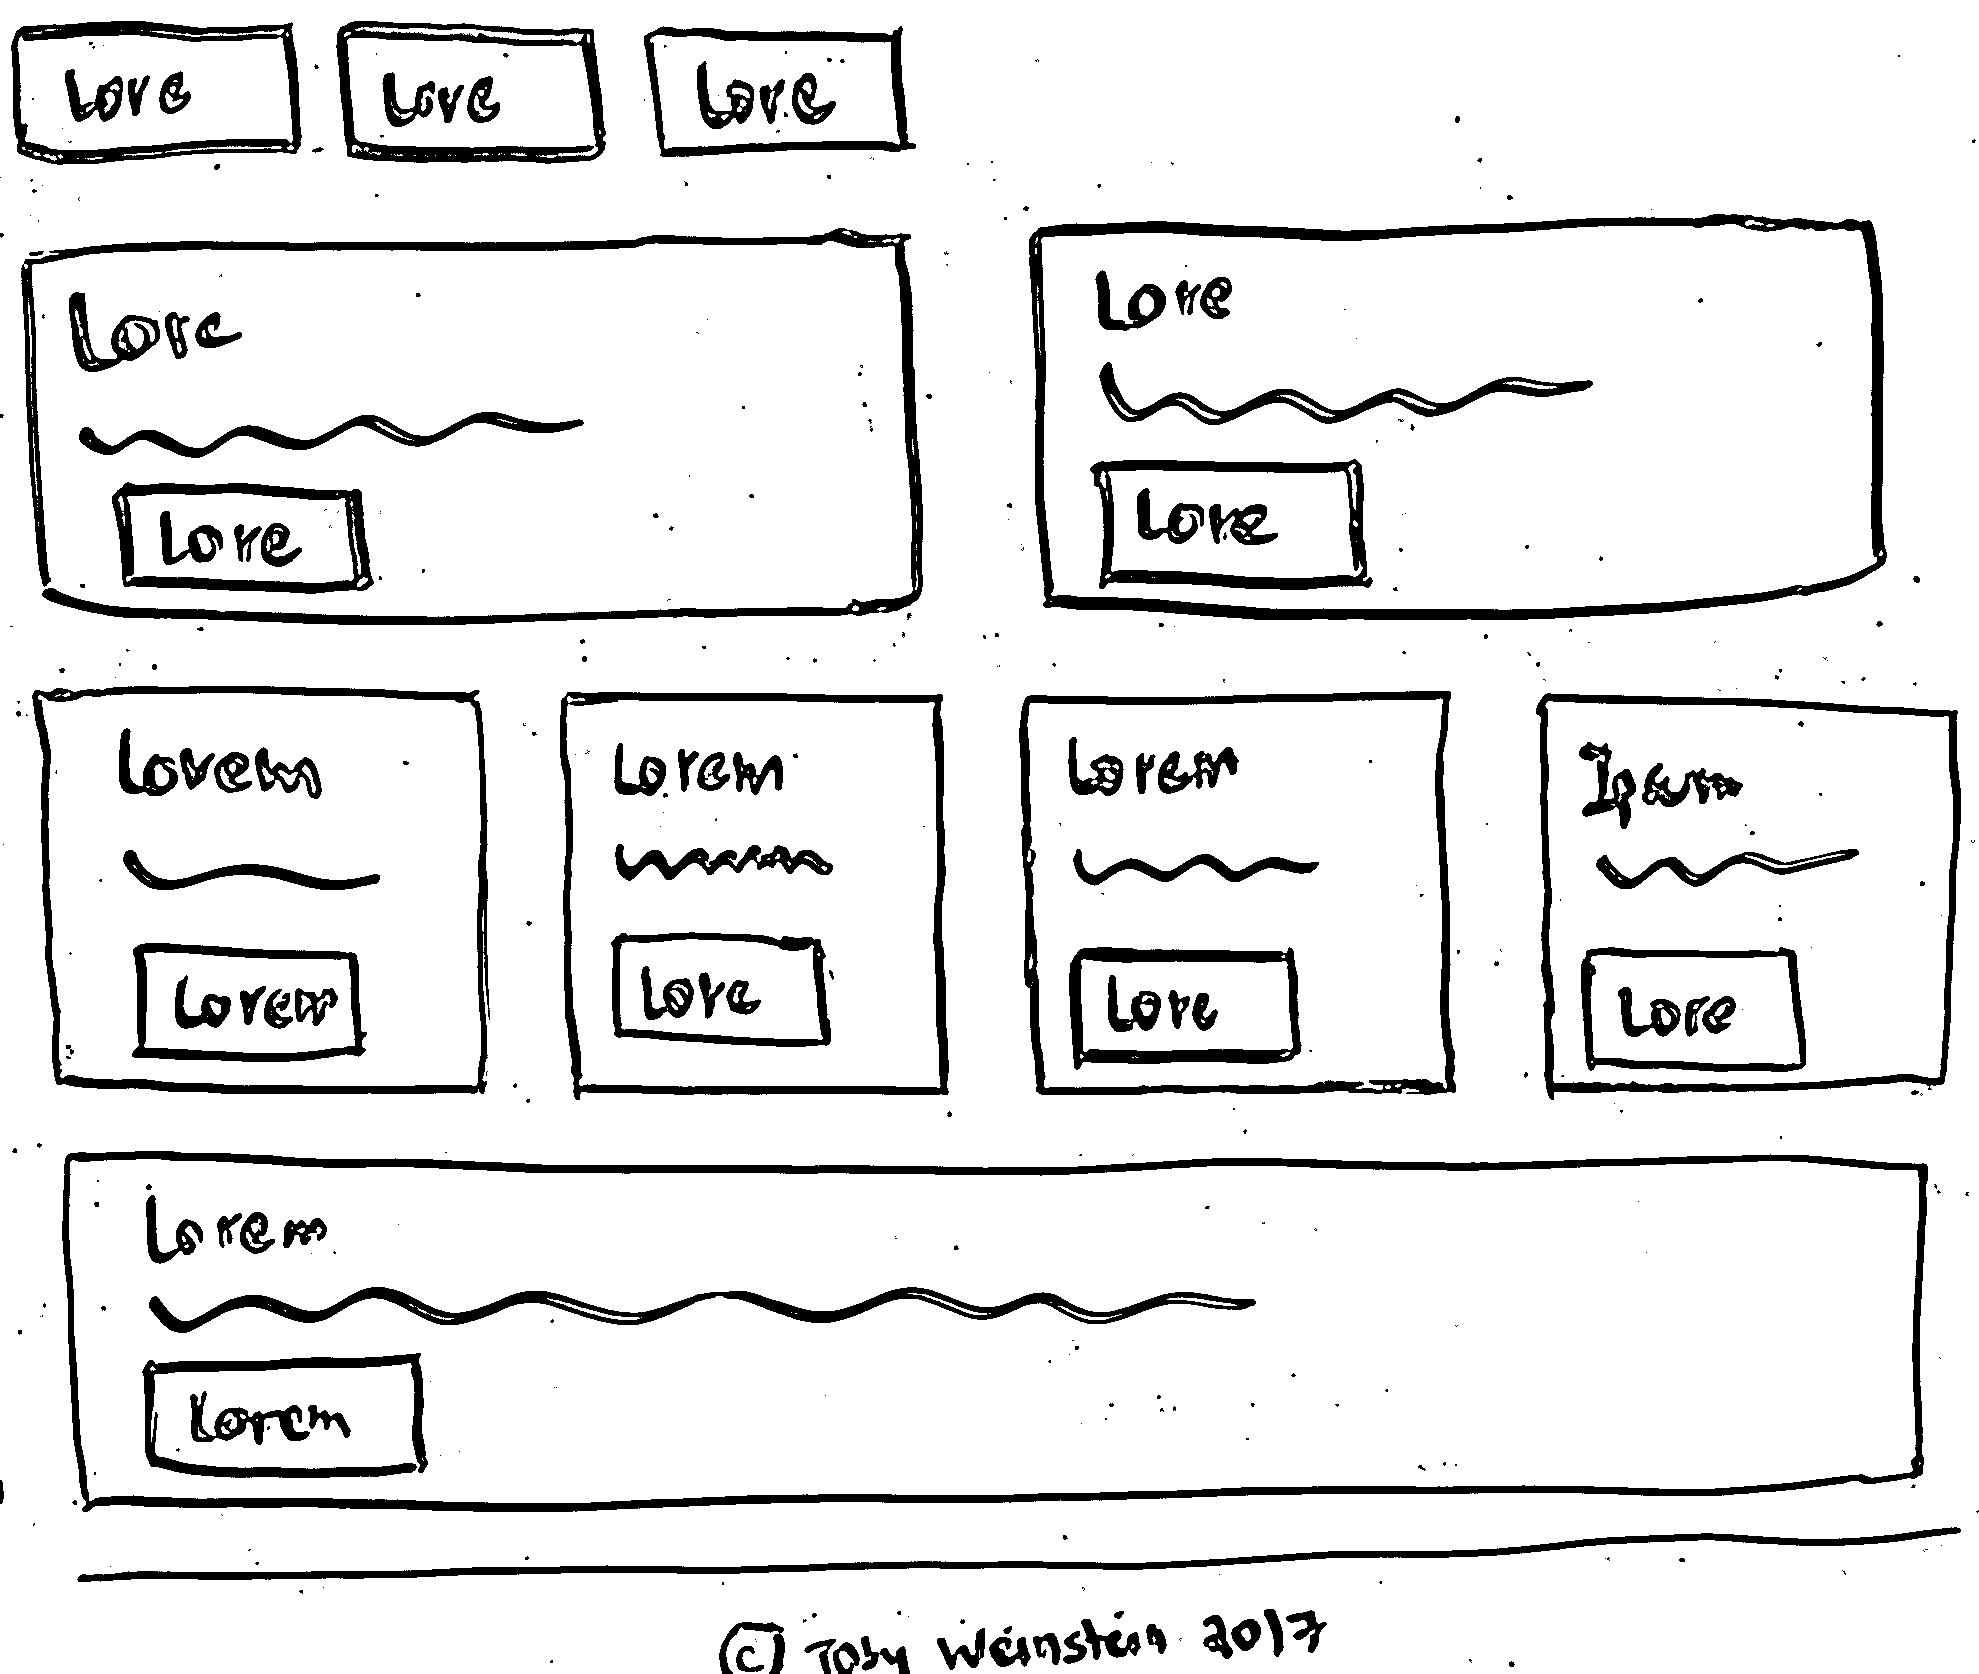 Lore Lore Lore
Lore Lore
Lore Lore
Lorem Lorem Lorem Ipsum
Lorem Lore Lore Lore
Lorem
Lorem
© Toby Weinstein 2017